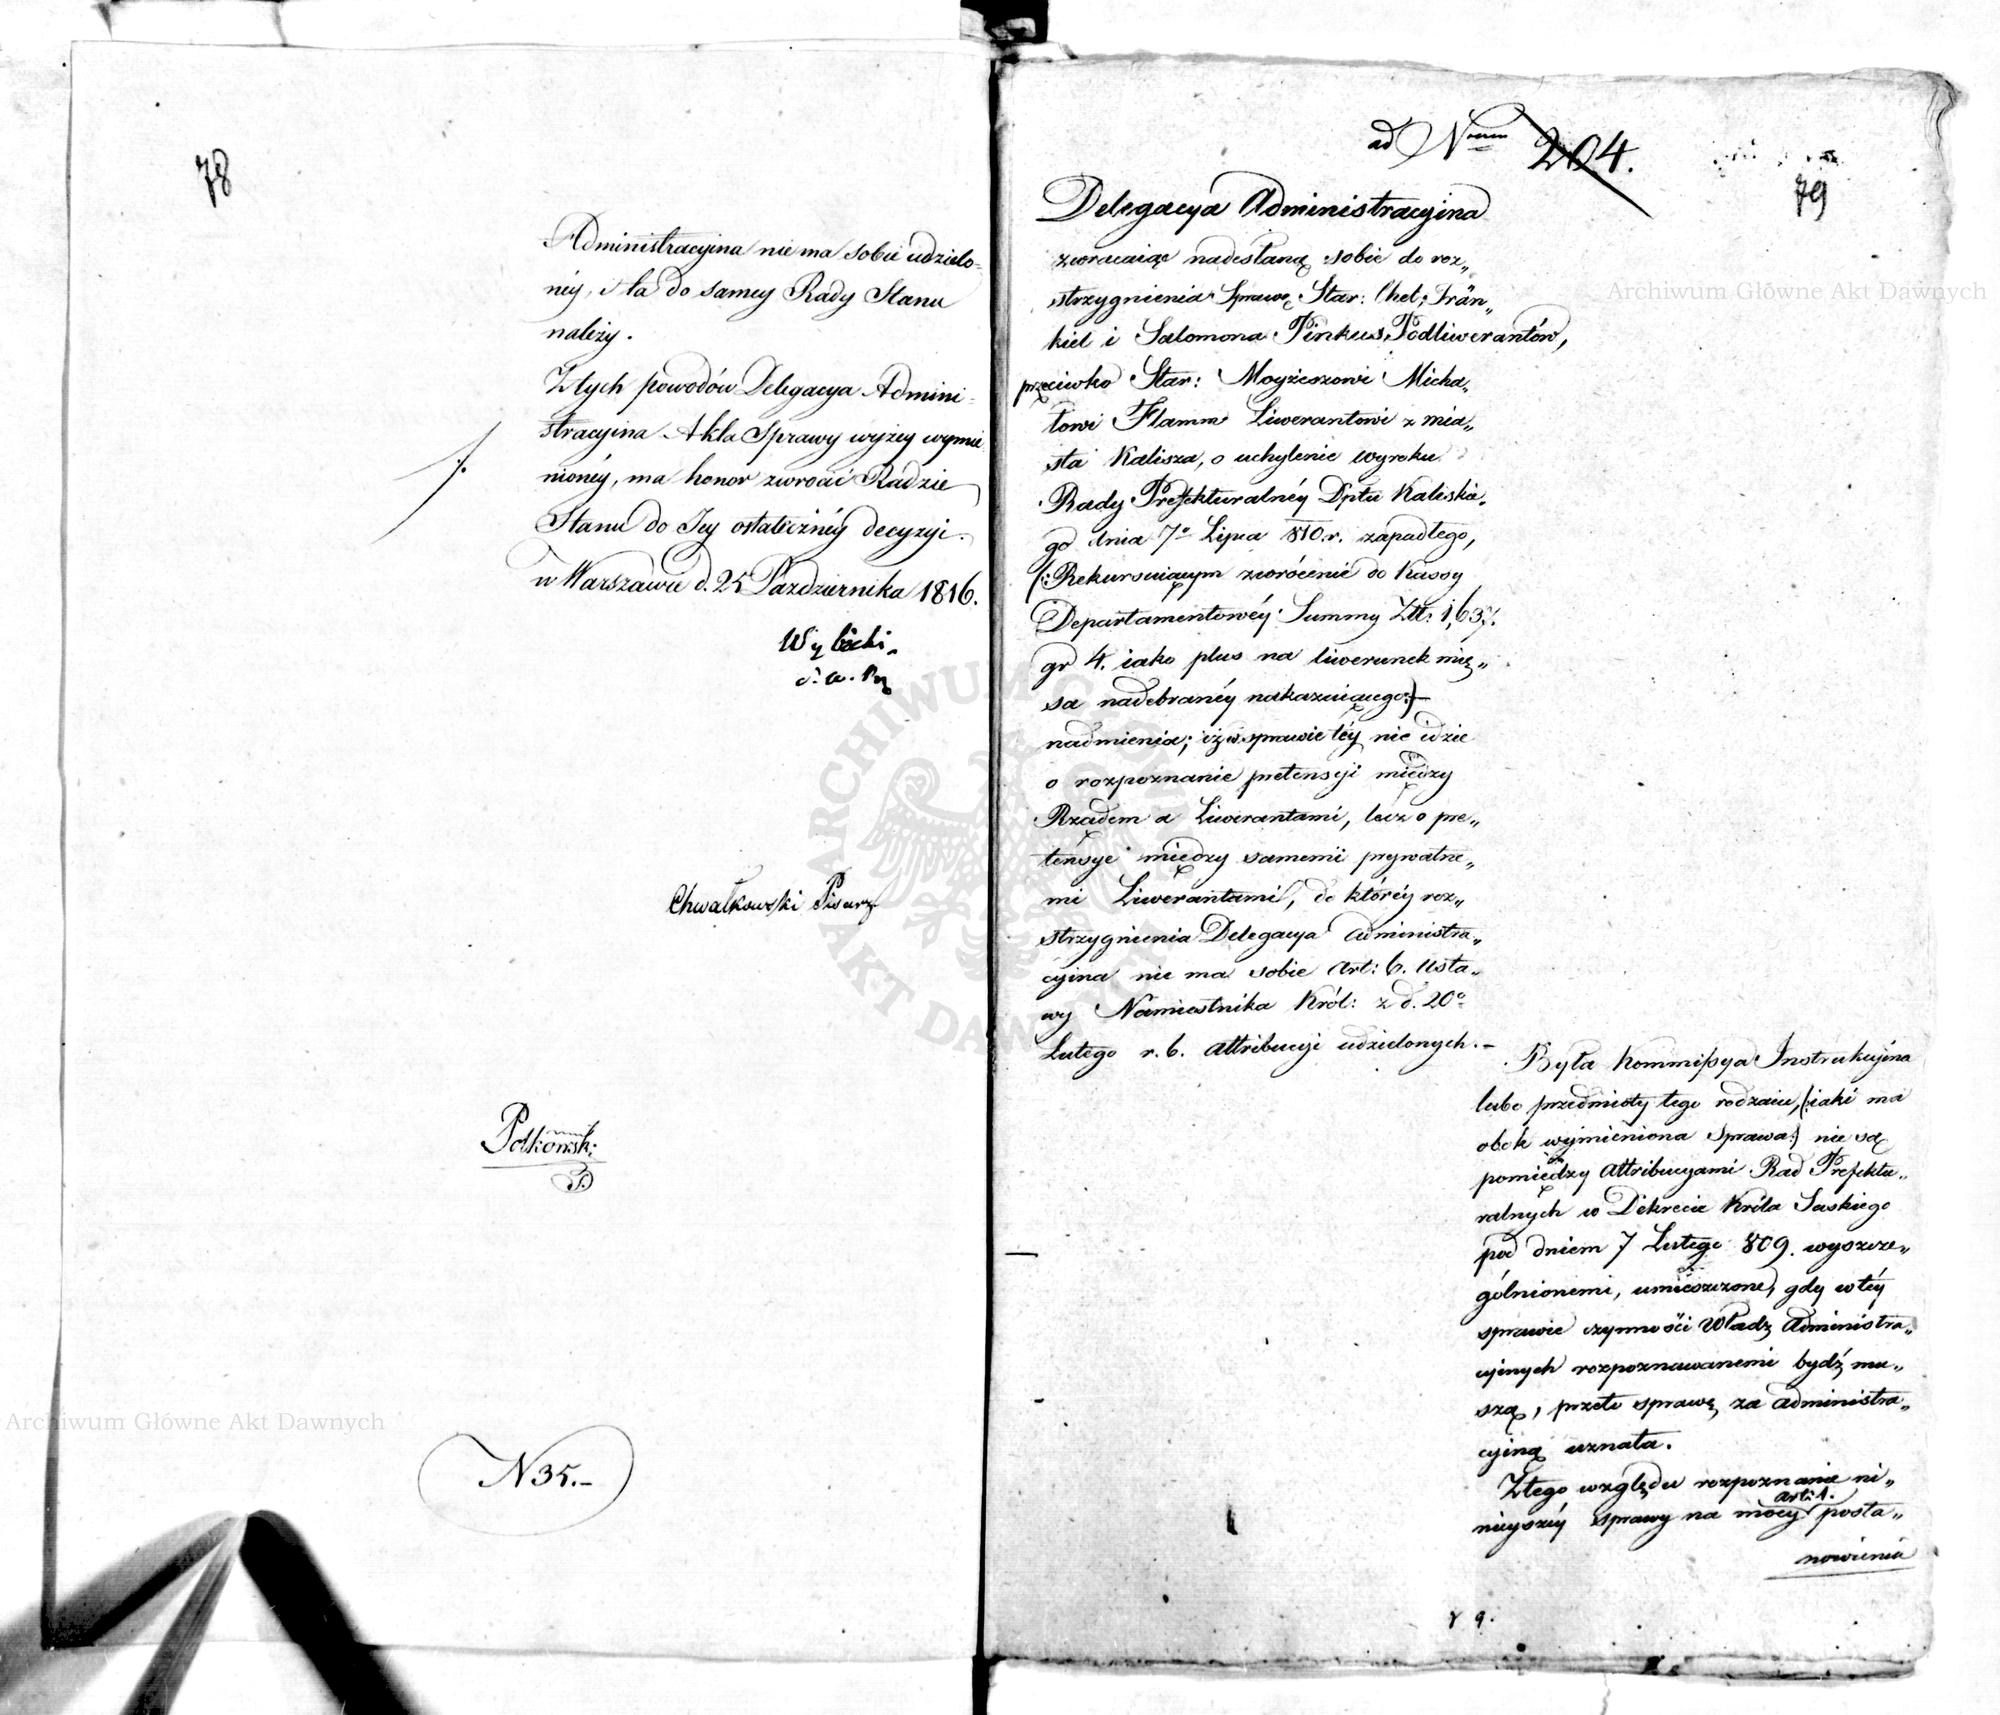 78
Administracyina nie ma sobie udzielo=
néy, i ta do samey Rady Stanu
należy.
Z tych powodów Delegacya Admini=
stracyina Akta Sprawy wyżey wymie
nionéy, ma honor zwrocić Radzie
Stanu do Jey ostatecznéy decyzyi.
w Warszawie d. 25 Pazdziernika 1816.
Wybicki.
Chwałkowski Pisarz
Potkowski
N 35.-
ad Num 204.
79
Delegacya Administracyina
zwracaiąc nadesłaną sobie do roz„
strzygnienia Sprawę Star: Chel: Frän„
kiel i Salomona Pinkus, Podliwerantów,
przeciwko Star: Moyżeszowi Micha„
łowi Flamm Liwerantowi z mia„
sta Kalisza, o uchylenie wyroku
Rady Prefekturalnéy Dptu Kaliskie„
go dnia 7o Lipca 810 r. zapadłego,
(: Rekursuiącym zwrócenie do Kassy
Departamentowéy Summy Złt: 1,637.
gr 4. iako plus na liwerunek mię„
sa nadebranéy nakazuiącego:)
nadmienia; iż w sprawie téy nie idzie
o rozpoznanie pretensyi między
Rządem a Liwerantami, lecz o pre„
tensye między samemi prywatne„
mi Liwerantami, do któréy roz„
strzygnienia Delegacya Administra„
cyina nie ma sobie Art: 6. Usta„
wy Namiestnika Król: z d. 20o
Lutego r. b. Attribucyi udzielonych.-
Była Kommissya Instrukcyina
lubo przedmioty tego rodzaiu, (: iaki ma
obok wymieniona Sprawa:) nie są
pomiędzy Attribucyami Rad Prefektu„
ralnych w Dekrecie Króla Saskiego
pod dniem 7 Lutego 809. wyszcze„
gólnionemi, umieszczone, gdy w téy
sprawie czynności Władz Administra„
cyinych rozpoznawanemi bydź mu„
szą, przeto sprawę za administra„
cyiną uznała.
Z tego względu rozpoznanie ni„
nieyszéy sprawy na mocy Art: 1. posta„
nowienia
Archiwum Główne Akt Dawnych
Archiwum Główne Akt Dawnych